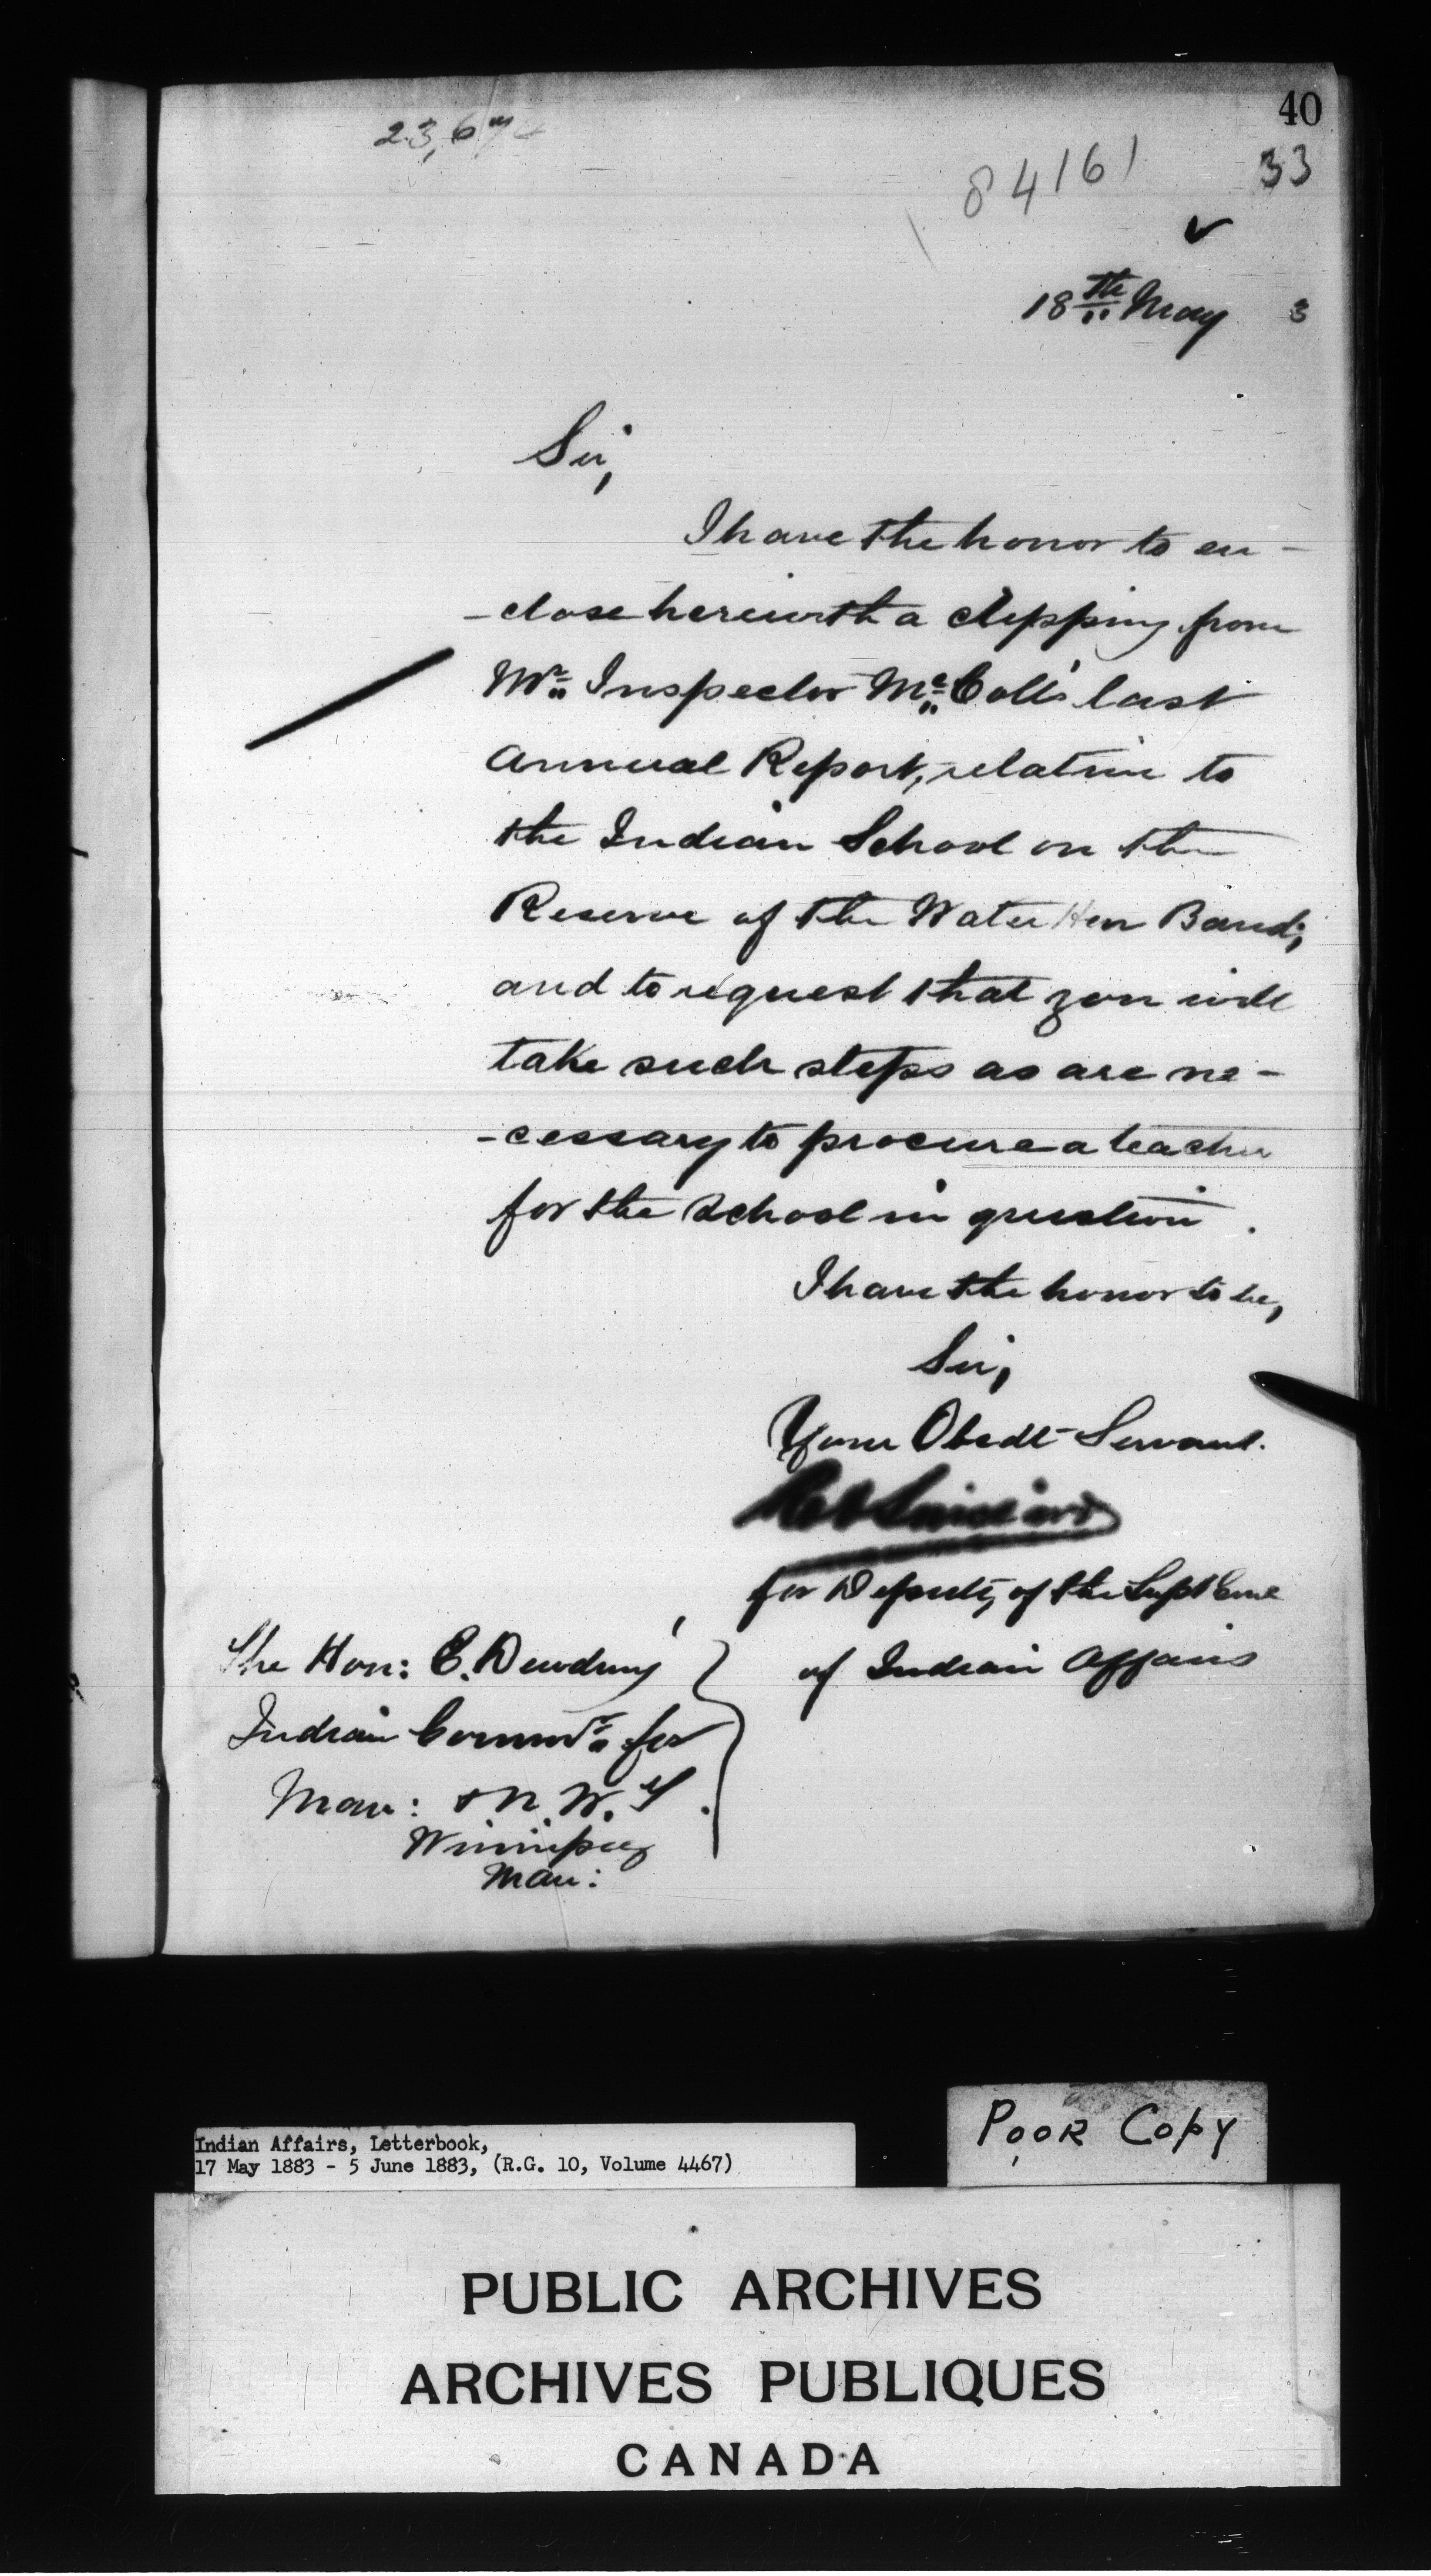 40
23,67
84161
33
18th May 3
Sir,
I have the honor to en-
-close herewith a clipping from
Mr. Inspector McColl's last
annual Report, relative to
the Indian School on the
Reserve of the Water Hen Band;
and to request that you will
take such steps as are ne-
-cessary to procure a teacher
for the School in question.
I have the honor to be,
Sir,
Your Obedt Servant.
for Deputy of the Supt Genl
of Indian Affairs
The Hon: E. Dewdney
Indian Commr. for
Man: & N. W. T.
Winnipeg
Man:
Poor Copy
Indian Affairs, Letterbook,
17 May 1883 - 5 June 1883, (R.G. 10, Volume 4467)
PUBLIC ARCHIVES
ARCHIVES PUBLIQUES
CANADA